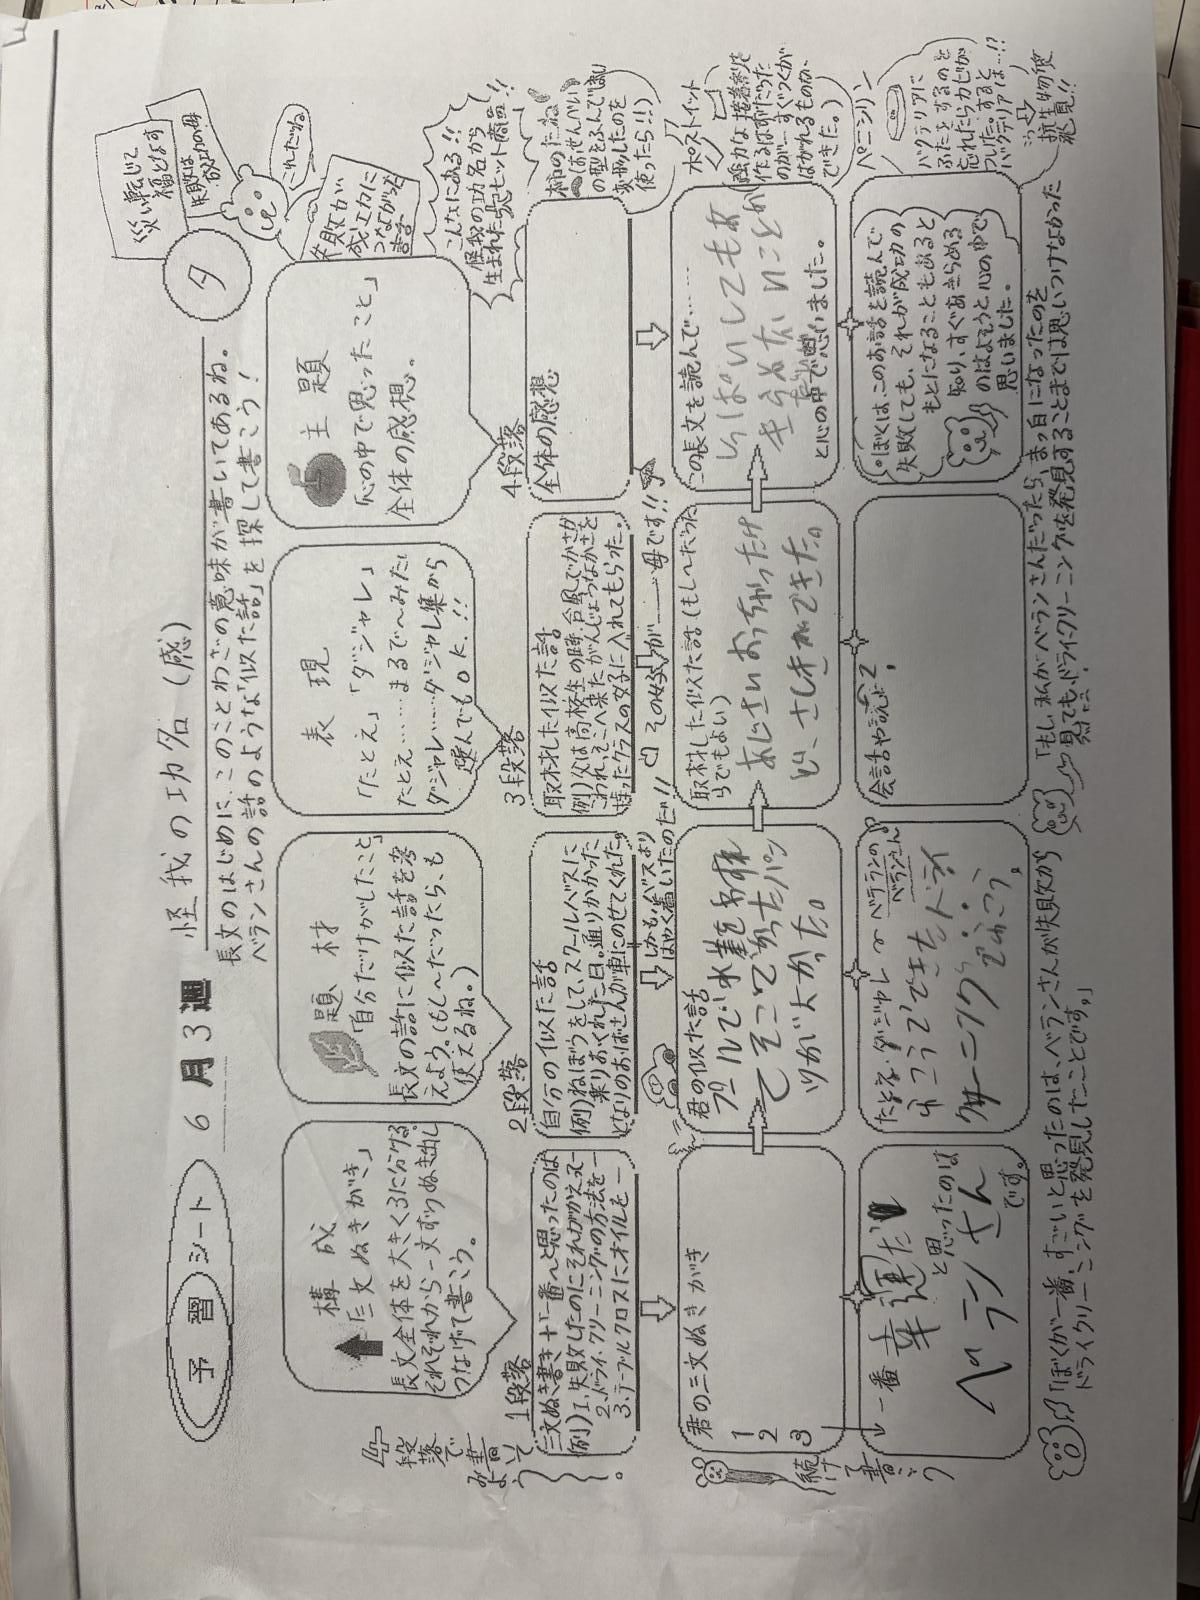 予習シート 6月3週 怪我の功名(感) タ
長文のはじめに、このことわざの意味が書いてあるね。
ベランさんの話のような「似た話」を探して書こう!
災い転じて
福となす
失敗は
成功の母
これだね。
失敗が
成功に
つながった
話
構成
「三文ぬきがき」
長文全体を大きく3に分ける。
それぞれから一文ずつぬき出し
つなげて書こう。
題材
「自分だけがしたこと」
長文の話に似た話を考
えよう。(もし~だったら、も
使えるね。)
表現
「たとえ」「ダジャレ」
たとえ……まるで~みたい
ダジャレ……ダジャレ集から
選んでもOK.!!
主題
「心の中で思ったこと」
全体の感想。
こんなにある!!
怪我の功名から
生まれた大ヒット商品!!
4段落で書いてみよう。
1段落
三文ぬき書き+「一番~と思ったのは
例)1.失敗したのにそれがかえって―
2.ドライクリーニングの方法を―
3.テーブルクロスにオイルを―
2段落
自分の似た話
例)ねぼうをして、スクールバスに
乗りおくれた日。通りかかった
となりのおばさんが車にのせてくれた。
しかもバスより
はやく着いたのだ!!
3段落
取材した似た話
例)父は高校生の時、台風でかさが
こわれ、そこへ来たがんじょうなかさを
持ったクラスの女子に入れてもらった。
その女子が――母です!!
4段落
全体の感想
柿のたね
(おせんべい
の型をふんで
変形したのを
使ったら!!)
ポストイット
(強力な接着剤を
作るはずだった
のが―すぐつくが
はがれるものが
できた。)
ペニシリン
バクテリアに
ふたをするのを
忘れたらカビが
ついた。すると
バクテリアは…!?
抗生物質
発見!!
続けて書こう
君の三文ぬきがき
1
2
3
君の似た話
プールで水着をわすれ
てそこで
ツが大かった。
取材した似た話(もし~だった
らでもよい)
あじさいおっちゃったけ
ど、さしきれできた。
この長文を読んで……
しっぱいしてもあ
きらめないことが
と心の中で思いました。
↓一番幸運だ
と思ったのは
ベランさん
です。
たとえ・ダジャレ ~ ベテランの
ベランさん
会話や説明
。ぼくは、このお話を読んで
失敗しても、それが成功の
もとになることもあると
知り、すぐあきらめる
のはよそうと心の中で
思いました。
「ぼくが一番、すごいと思ったのは、ベランさんが失敗から
ドライクリーニングを発見したことです。」
「もし、私がベランさんだったら、まっ白になったのを
見ても、ドライクリーニングを発見することまでは思いつけなかった